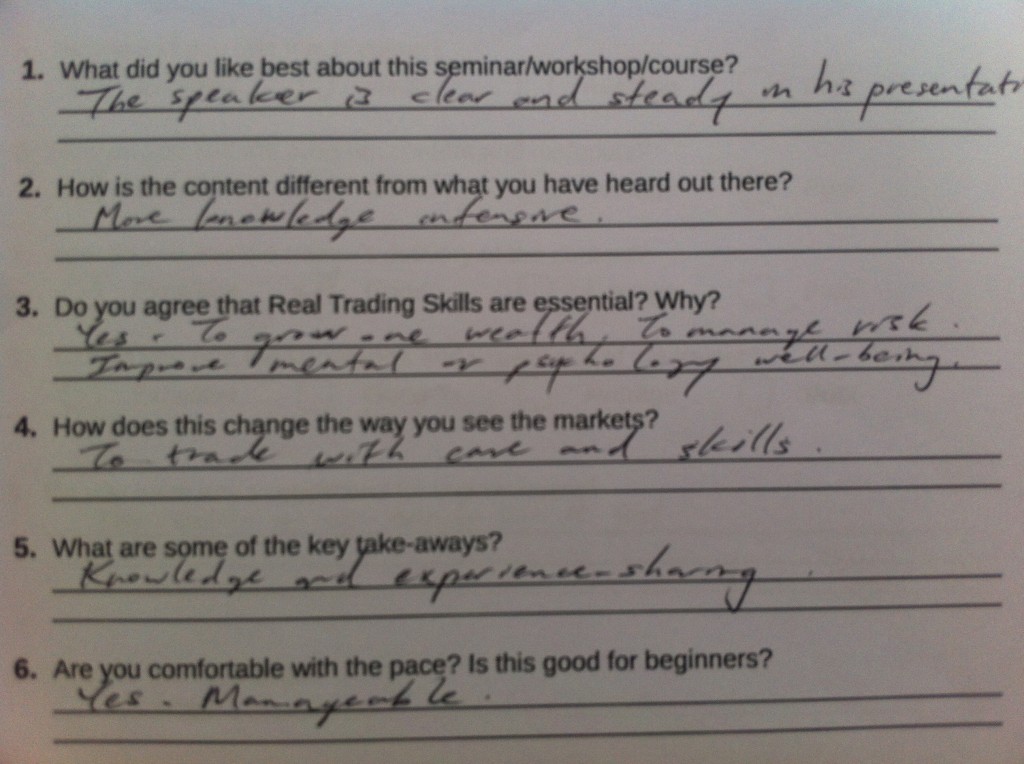 1. What did you like best about this seminar/workshop/course?
The speaker is clear and steady in his presentati
2. How is the content different from what you have heard out there?
More knowledge intensive.
3. Do you agree that Real Trading Skills are essential? Why?
Yes. To grow one wealth. To manage risk.
Improve mental or psychology well-being.
4. How does this change the way you see the markets?
To trade with care and skills.
5. What are some of the key take-aways?
Knowledge and experience-sharing.
6. Are you comfortable with the pace? Is this good for beginners?
Yes. Manageable.